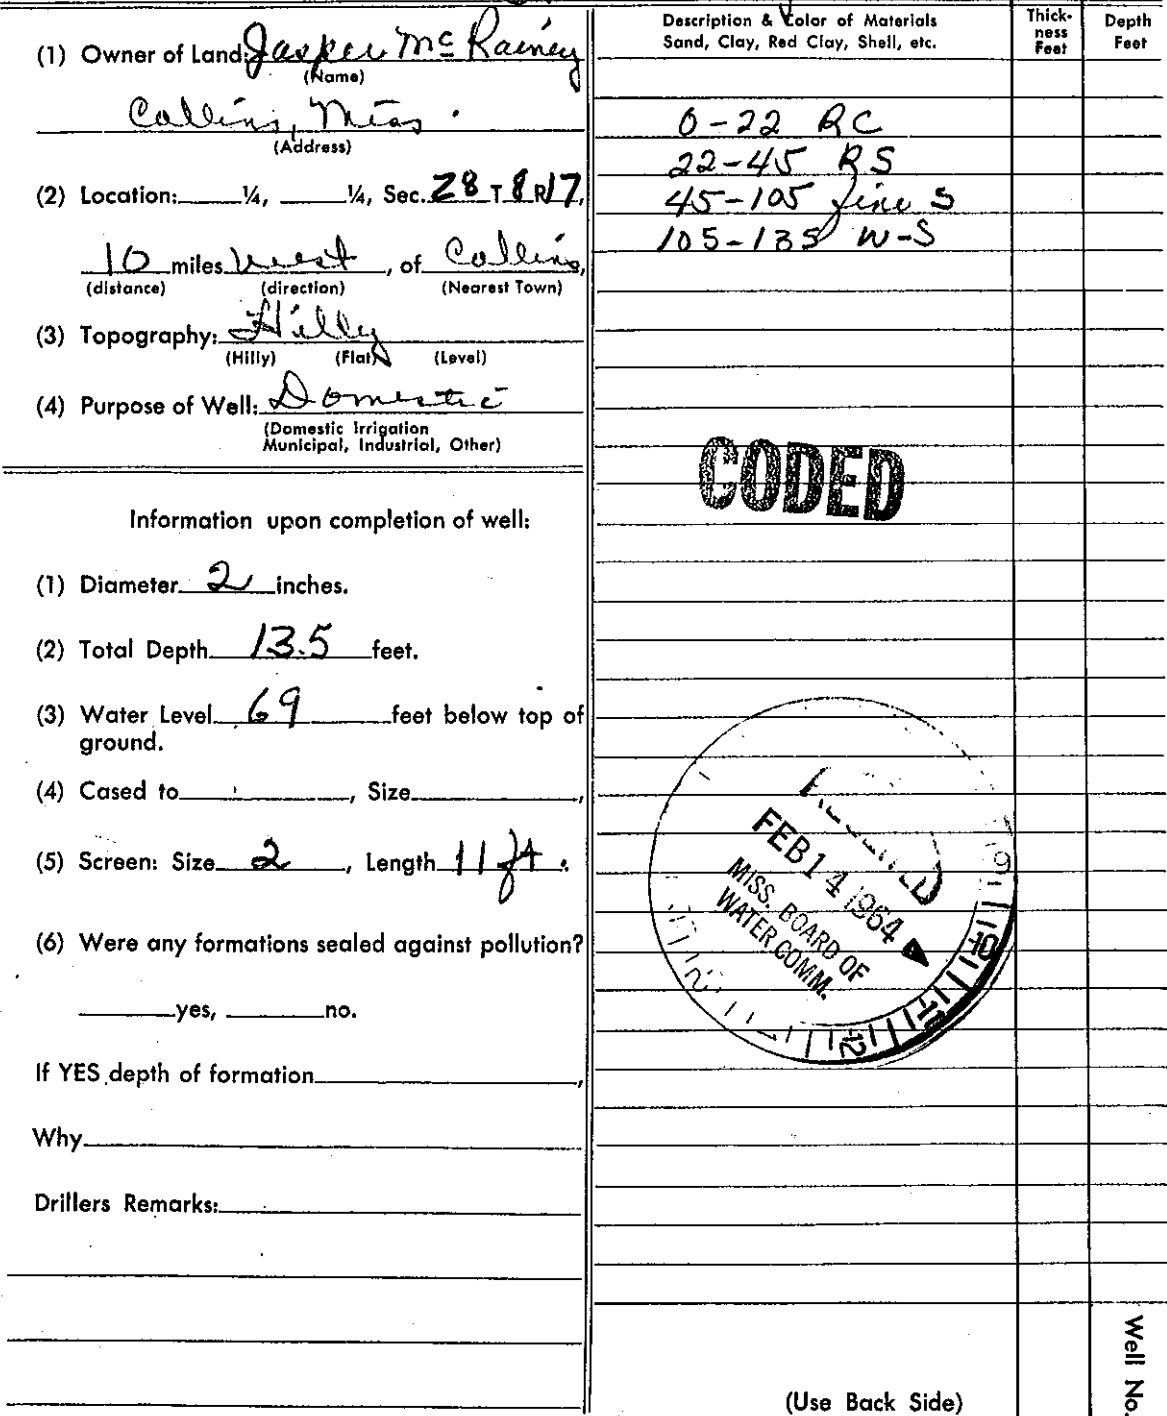 (1) Owner of Land: Jasper Mc Rainey
(Name)
Collins, Miss.
(Address)
(2) Location: ¼, ¼, Sec. 28 T 8 R 17,
10 miles west, of Collins,
(distance) (direction) (Nearest Town)
(3) Topography: Hilly
(Hilly) (Flat) (Level)
(4) Purpose of Well: Domestic
(Domestic Irrigation
Municipal, Industrial, Other)
Information upon completion of well:
(1) Diameter 2 inches.
(2) Total Depth 135 feet.
(3) Water Level 69 feet below top of
ground.
(4) Cased to , Size ,
(5) Screen: Size 2, Length 11 ft.
(6) Were any formations sealed against pollution?
yes, no.
If YES depth of formation ,
Why
Drillers Remarks:
Description & Color of Materials
Sand, Clay, Red Clay, Shell, etc.
Thick-
ness
Feet
Depth
Feet
0-22 RC
22-45 RS
45-105 fine S
105-135 W-S
CODED
RECEIVED
FEB 14 1964
MISS. BOARD OF
WATER COMM.
(Use Back Side)
Well No.